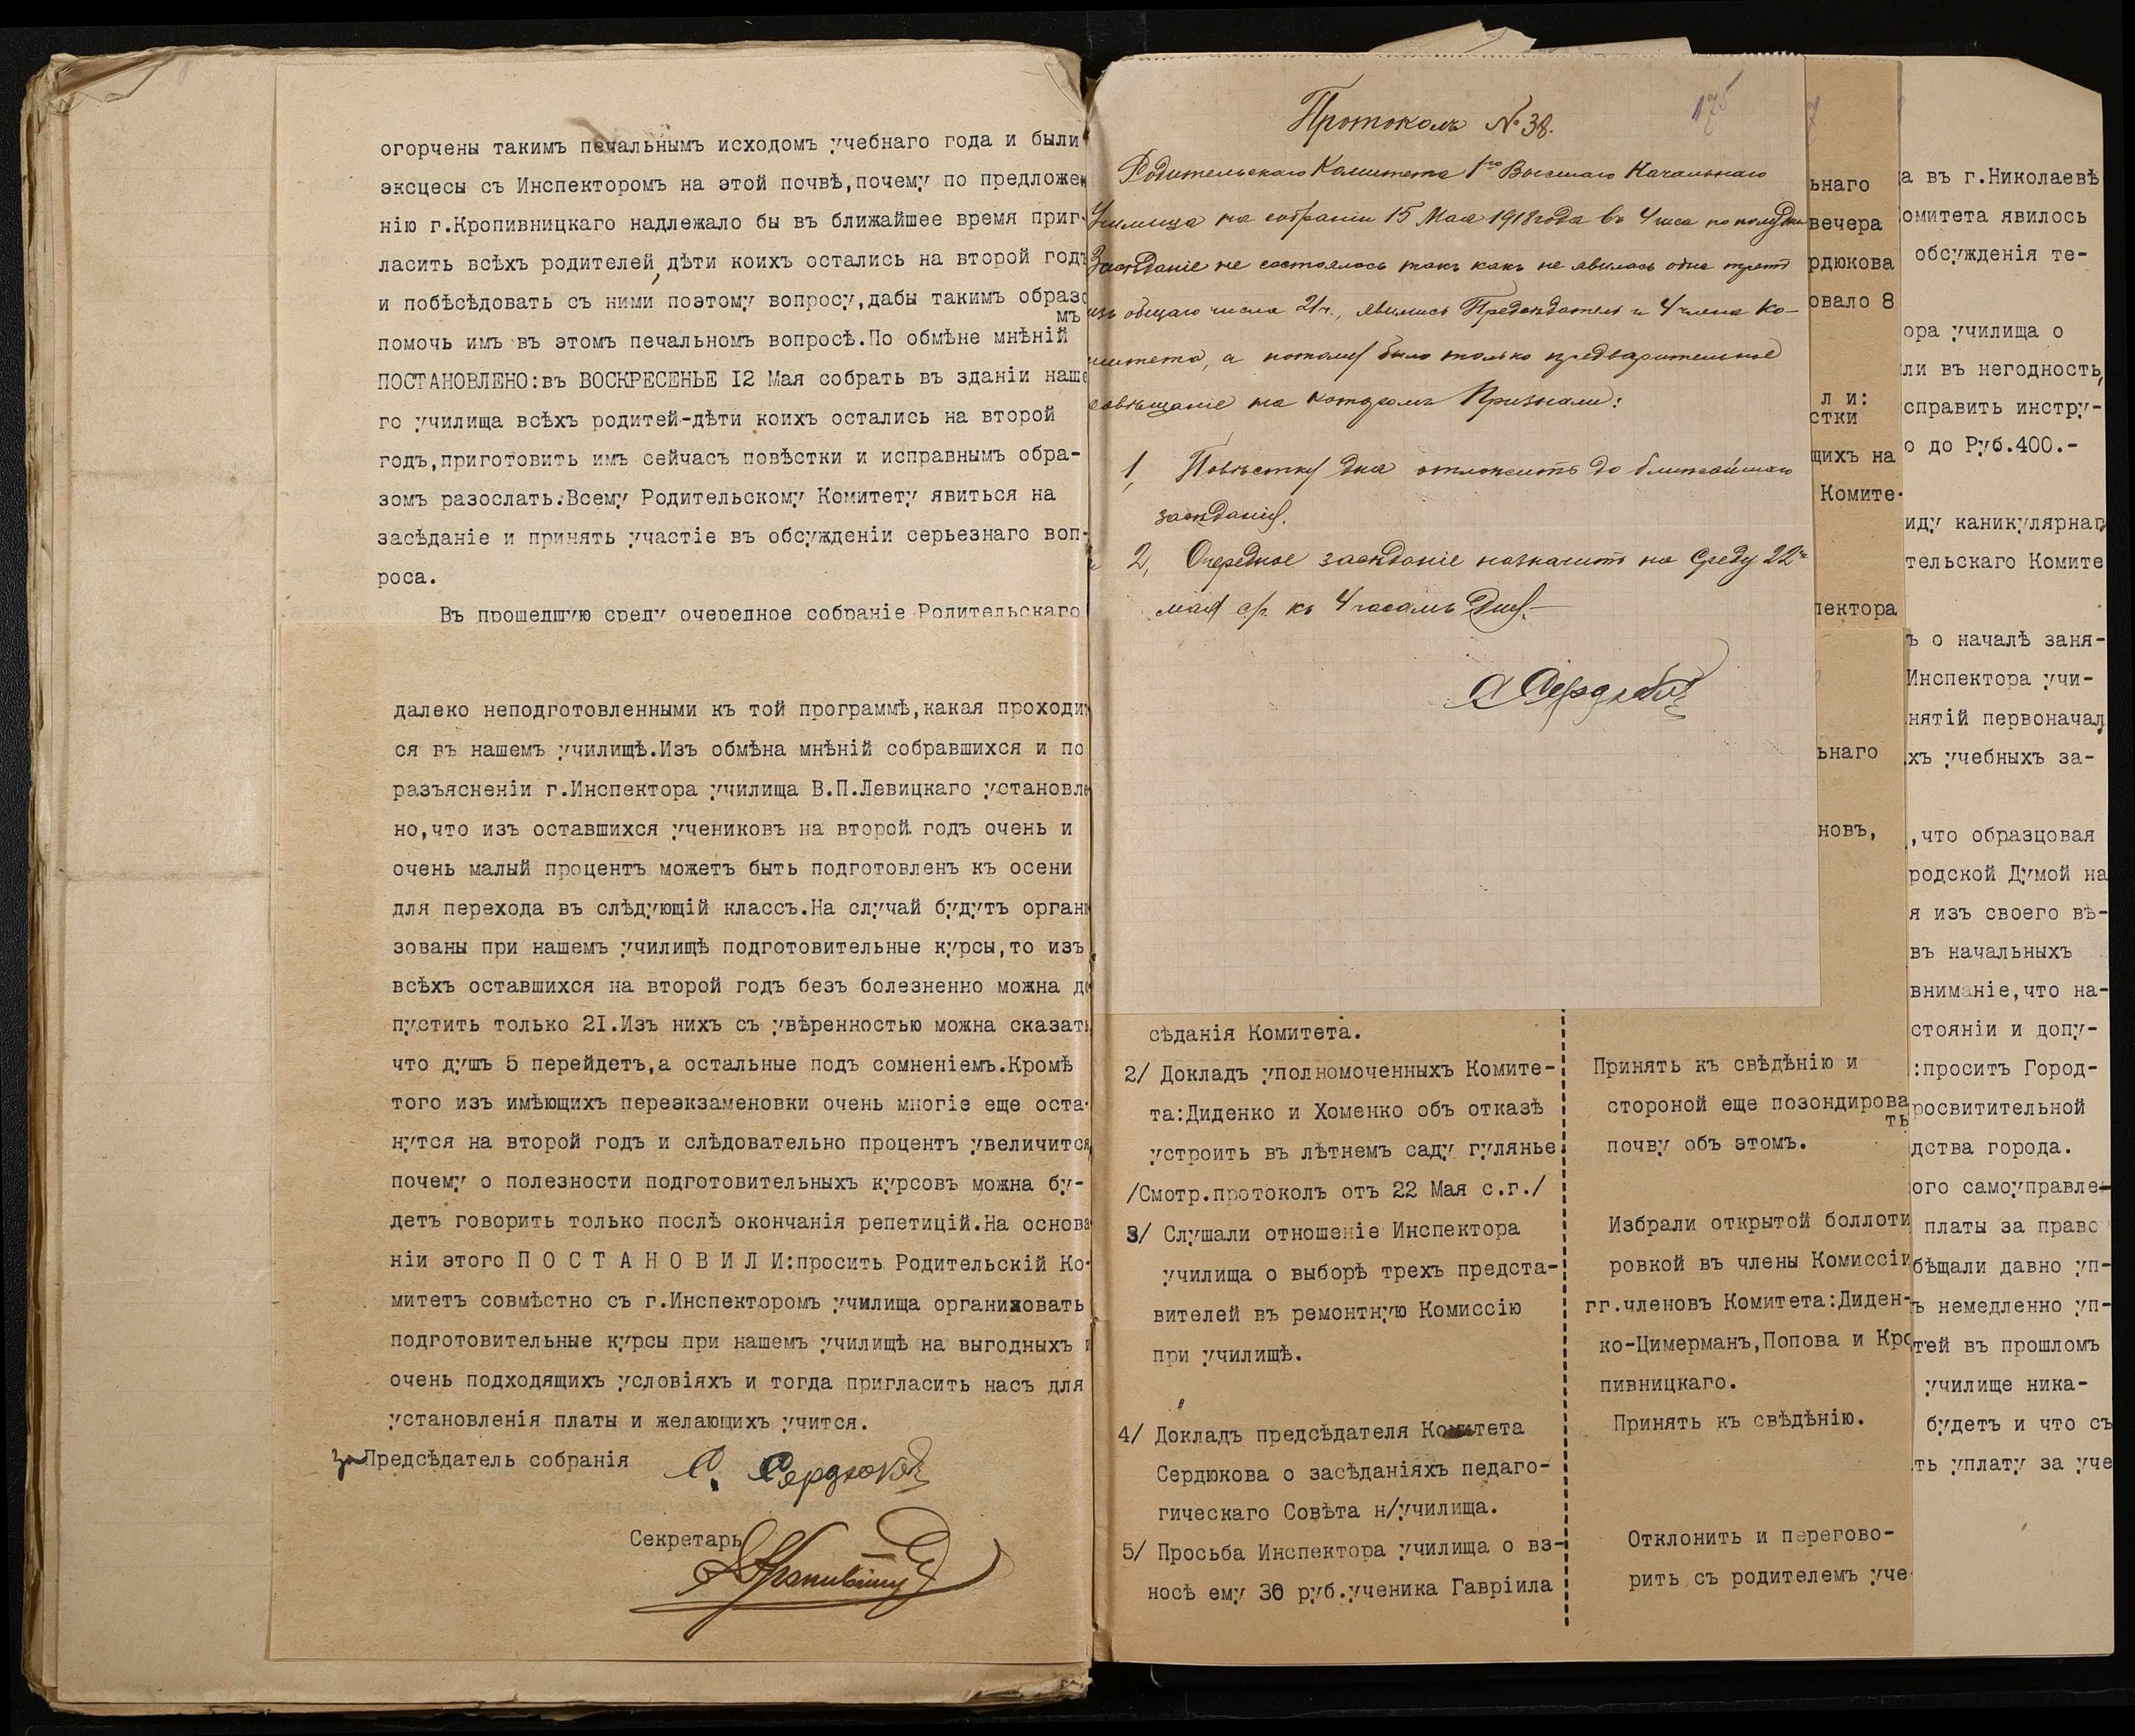 огорчены такимъ печальнымъ исходомъ учебнаго года и были
эксцесы съ Инспекторомъ на этой почвѣ,почему по предложе
нію г.Кропивницкаго надлежало бы въ ближайшее время приг-
ласить всѣхъ родителей,дѣти коихъ остались на второй годъ
и побѣсѣдовать съ ними поэтому вопросу,дабы такимъ образо
мъ
помочь имъ въ этомъ печальномъ вопросѣ.По обмѣне мнѣній
ПОСТАНОВЛЕНО:въ ВОСКРЕСЕНЬЕ I2 Мая собрать въ зданіи наше
го училища всѣхъ родитей-дѣти коихъ остались на второй
годъ,приготовить имъ сейчасъ повѣстки и исправнымъ обра-
зомъ разослать.Всему Родительскому Комитету явиться на
засѣданіе и принять участіе въ обсужденіи серьезнаго воп-
роса.
Въ прошедшую среду очередное собраніе Родительскаго
далеко неподготовленными къ той программѣ,какая проходи
ся въ нашемъ училищѣ.Изъ обмѣна мнѣній собравшихся и по
разъясненіи г.Инспектора училища В.П.Левицкаго установле
но,что изъ оставшихся учениковъ на второй годъ очень и
очень малый процентъ можетъ быть подготовленъ къ осени
для перехода въ слѣдующій классъ.На случай будутъ органи
зованы при нашемъ училищѣ подготовительные курсы,то изъ
всѣхъ оставшихся на второй годъ безъ болезненно можна до
пустить только 2I.Изъ нихъ съ увѣренностью можна сказать
что душъ 5 перейдетъ,а остальные подъ сомненіемъ.Кромѣ
того изъ имѣющихъ переэкзаменовки очень многіе еще оста-
нутся на второй годъ и слѣдовательно процентъ увеличится,
почему о полезности подготовительныхъ курсовъ можна бу-
детъ говорить только послѣ окончанія репетицій.На основа
ніи этого П О С Т А Н О В И Л И:просить Родительскій Ко-
митетъ совмѣстно съ г.Инспекторомъ училища организовать
подготовительные курсы при нашемъ училищѣ на выгодныхъ и
очень подходящихъ условіяхъ и тогда пригласить насъ для
установленія платы и желающихъ учится.
за Предсѣдатель собранія С. Сердюковъ
Секретарь
175
Протоколъ № 38.
Родительскаго Комитета 1го Высшаго Начальнаго
Училища на собраніи 15 Мая 1918 года въ 4 часа по полудни
Засѣданіе не состоялось такъ какъ не явилась одна треть
изъ общаго числа 21 ч., явились Предсѣдатель и 4 члена Ко-
митета, а потому было только предварительное
совѣщаніе на которомъ Признали:
1, Повѣстку дня отложить до ближайшаго
засѣданія.
2, Очередное засѣданіе назначить на Среду 22го
мая с/г. къ 4 часамъ дня.
С Сердюковъ
сѣданія Комитета.
2/ Докладъ уполномоченныхъ Комите-
та:Диденко и Хоменко объ отказѣ
устроить въ лѣтнемъ саду гулянье
/Смотр.протоколъ отъ 22 Мая с.г./
3/ Слушали отношеніе Инспектора
училища о выборѣ трехъ предста-
вителей въ ремонтную Комиссію
при училищѣ.
4/ Докладъ предсѣдателя Комитета
Сердюкова о засѣданіяхъ педаго-
гическаго Совѣта н/училища.
5/ Просьба Инспектора училища о вз-
носѣ ему 30 руб.ученика Гавріила
Принять къ свѣдѣнію и
стороной еще позондирова
ть
почву объ этомъ.
Избрали открытой боллоти
ровкой въ члены Комиссіи
гг.членовъ Комитета:Диден-
ко-Цимерманъ,Попова и Кро
пивницкаго.
Принять къ свѣдѣнію.
Отклонить и перегово-
рить съ родителемъ уче
7
ьнаго
вечера
рдюкова
овало 8
л и:
стки
щихъ на
Комите-
пектора
ьнаго
новъ,
а въ г.Николаевѣ
омитета явилось
обсужденія те-
ора училища о
ли въ негодность,
справить инстру-
о до Руб.400.-
иду каникулярнаг
тельскаго Комите
ъ о началѣ заня-
Инспектора учи-
нятій первоначал
хъ учебныхъ за-
,что образцовая
родской Думой на
я изъ своего вѣ-
въ начальныхъ
вниманіе,что на-
стояніи и допу-
:проситъ Город-
росвитительной
дства города.
ого самоуправле-
платы за право
бѣщали давно уп-
ъ немедленно уп-
тей въ прошломъ
училище ника-
будетъ и что съ
ть уплату за уче